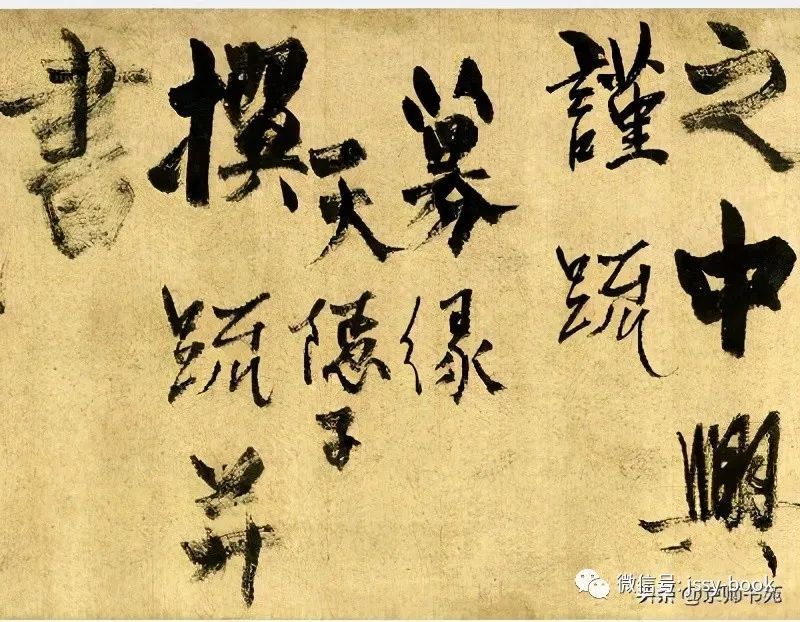 之中興
謹疏
募緣
天隱子
撰疏并
書
微信号: jssy-book
头条 @京师书苑